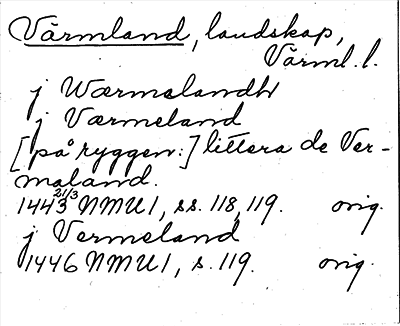 Värmland, landskap,
Värml. l.
j Wærmelandh
j Værmeland
[på ryggen:] littera de Ver-
maland.
1443 21/3 NMU 1, ss. 118, 119. orig.
j Vermeland
1446 NMU 1, s. 119. orig.